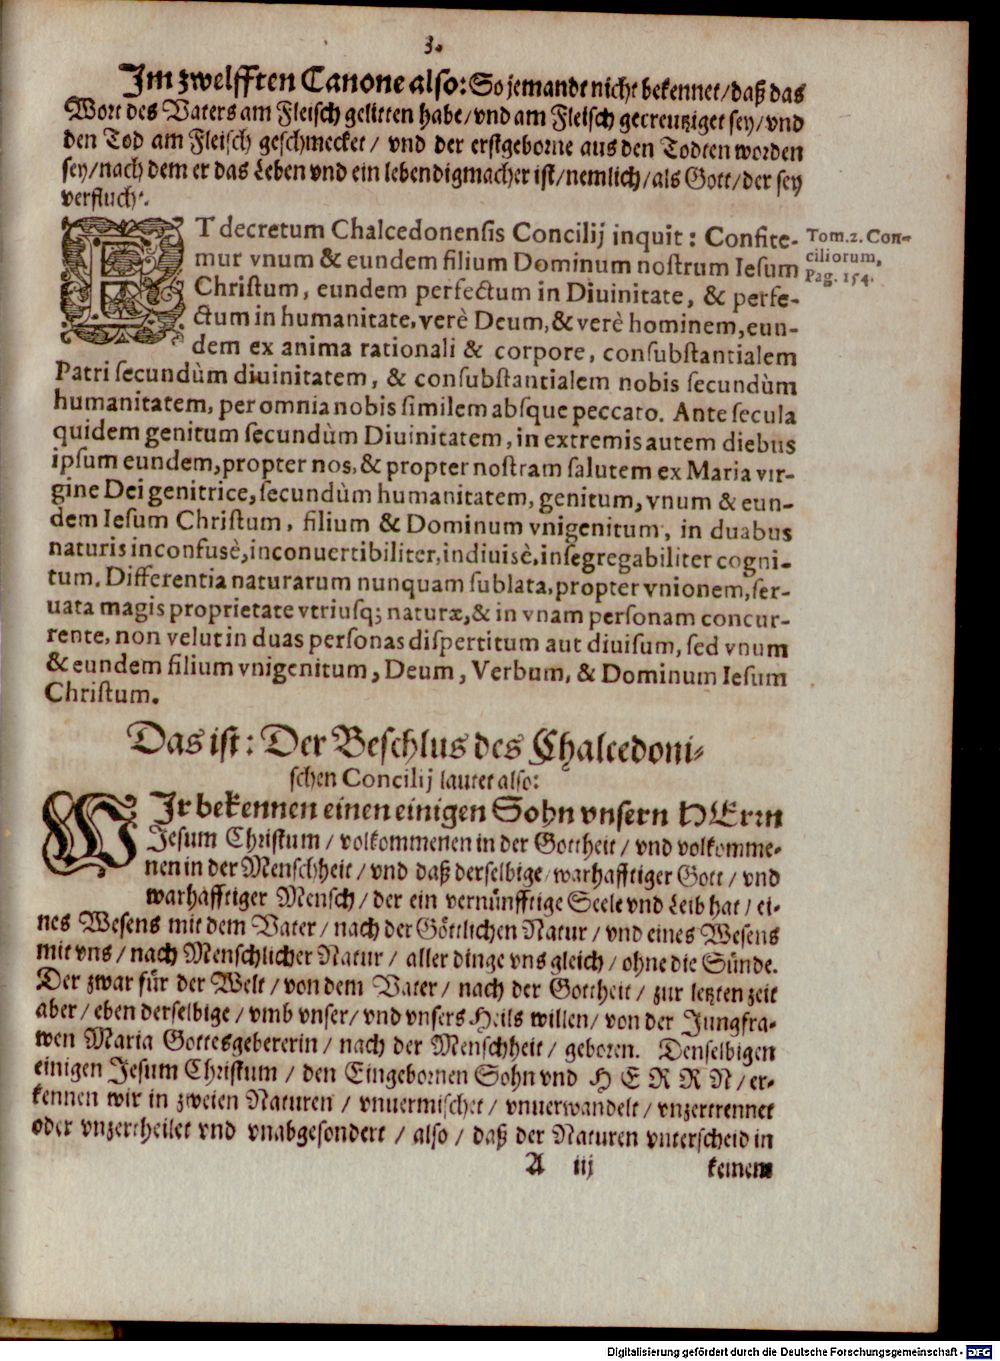 3.
Im zwelfften Canone also: So jemandt nicht bekennet/daß das
Wort des Vaters am Fleisch gelitten habe/vnd am Fleisch gecreutziget sey/vnd
den Tod am Fleisch geschmecket/ vnd der erstgeborne aus den Todten worden
sey/nach dem er das Leben vnd ein lebendigmacher ist/nemlich/als Gott/der sey
verflucht.
ET decretum Chalcedonensis Concilij inquit: Confite-
mur vnum & eundem filium Dominum nostrum Iesum
Christum, eundem perfectum in Diuinitate, & perfe-
ctum in humanitate, verè Deum, & verè hominem, eun-
dem ex anima rationali & corpore, consubstantialem
Patri secundùm diuinitatem, & consubstantialem nobis secundùm
humanitatem, per omnia nobis similem absque peccato. Ante secula
quidem genitum secundùm Diuinitatem, in extremis autem diebus
ipsum eundem, propter nos, & propter nostram salutem ex Maria vir-
gine Dei genitrice, secundùm humanitatem, genitum, vnum & eun-
dem Iesum Christum, filium & Dominum vnigenitum, in duabus
naturis inconfusè, inconuertibiliter, indiuisè, insegregabiliter cogni-
tum. Differentia naturarum nunquam sublata, propter vnionem, ser-
uata magis proprietate vtriusq; naturæ, & in vnam personam concur-
rente, non velut in duas personas dispertitum aut diuisum, sed vnum
& eundem filium vnigenitum, Deum, Verbum, & Dominum Iesum
Christum.
Tom. 2. Con-
ciliorum,
Pag. 154.
Das ist: Der Beschlus des Chalcedoni-
schen Concilij lautet also:
WIr bekennen einen einigen Sohn vnsern HErrn
Jesum Christum / volkommenen in der Gottheit / vnd volkomme-
nen in der Menschheit / vnd daß derselbige/ warhafftiger Gott / vnd
warhafftiger Mensch / der ein vernünfftige Seele vnd Leib hat / ei-
nes Wesens mit dem Vater / nach der Göttlichen Natur / vnd eines Wesens
mit vns / nach Menschlicher Natur / aller dinge vns gleich / ohne die Sünde.
Der zwar für der Welt / von dem Vater / nach der Gottheit / zur letzten zeit
aber / eben derselbige / vmb vnser/ vnd vnsers Heils willen/ von der Jungfra-
wen Maria Gottesgebererin / nach der Menschheit / geboren. Denselbigen
einigen Jesum Christum / den Eingebornen Sohn vnd HERRN / er-
kennen wir in zweien Naturen / vnuermischet / vnuerwandelt / vnzertrennet
oder vnzertheilet vnd vnabgesondert / also / daß der Naturen vnterscheid in
A iij keinem
Digitalisierung gefördert durch die Deutsche Forschungsgemeinschaft - DFG